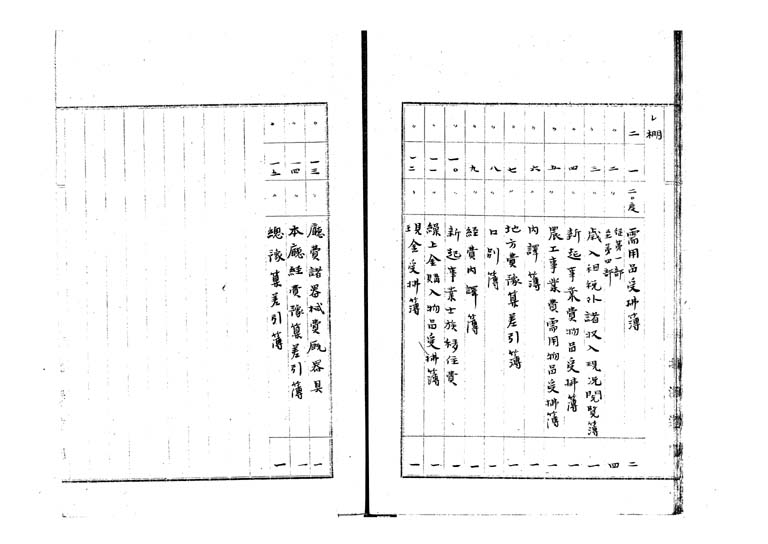 レ棚
二 一 二〇度 需用品受拂簿 二
〃 二 〃 從第一部至第四部 四
〃 三 〃 歳入租税外諸収入現况閲覧簿 一
〃 四 〃 新起事業費物品受拂簿 一
〃 五 〃 農工事業費需用物品受拂簿 一
〃 六 〃 内譯簿 一
〃 七 〃 地方費豫算差引簿 一
〃 八 〃 口別簿 一
〃 九 〃 経費内譯簿 一
〃 一〇 〃 新起事業士族移住費 一
〃 一一 〃 繰上金購入物品受拂簿 一
〃 一二 〃 現金受拂簿 一
〃 一三 〃 廳費諸器械費厩器具 一
〃 一四 〃 本廳経費豫算差引簿 一
〃 一五 〃 總豫算差引簿 一